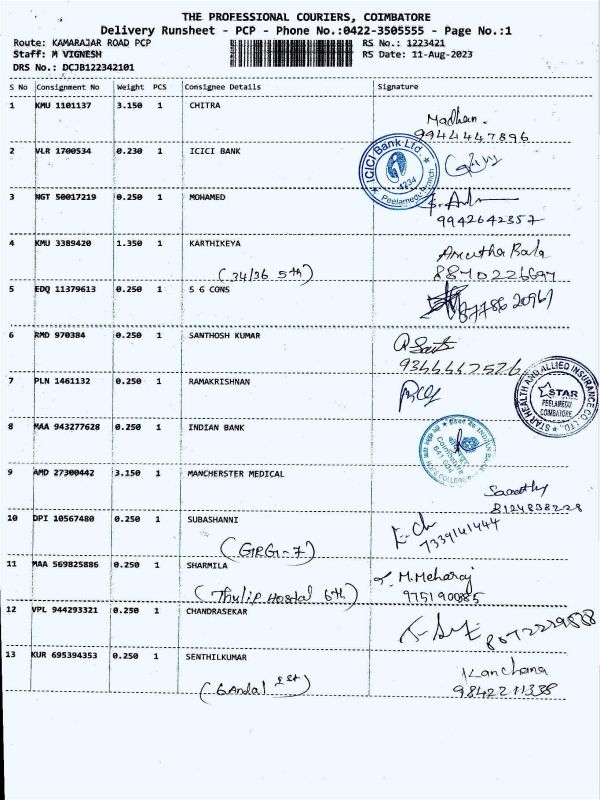 THE PROFESSIONAL COURIERS, COIMBATORE
Delivery Runsheet - PCP - Phone No.:0422-3505555 - Page No.:1
Route: KAMARAJAR ROAD PCP RS No.: 1223421
Staff: M VIGNESH RS Date: 11-Aug-2023
DRS No.: DCJB122342101
S No Consignment No Weight PCS Consignee Details Signature
1 KMU 1101137 3.150 1 CHITRA
Madhan.
9944447896
2 VLR 1700534 0.230 1 ICICI BANK
ICICI Bank Ltd
4234
Peelamedu Branch
3 NGT 50017219 0.250 1 MOHAMED
9942642357
4 KMU 3389420 1.350 1 KARTHIKEYA
Amutha Bala
(34/36 5th)
8870226697
5 EDQ 11379613 0.250 1 S G CONS
6 RMD 970384 0.250 1 SANTHOSH KUMAR
7 PLN 1461132 0.250 1 RAMAKRISHNAN
STAR HEALTH AND ALLIED INSURANCE CO. LTD.,
STAR
PEELAMEDU
COIMBATORE
8 MAA 943277628 0.250 1 INDIAN BANK
INDIAN BANK
Coimbatore
HOPE COLLEGE
9 AMD 27300442 3.150 1 MANCHERSTER MEDICAL
8124838228
10 DPI 10567480 0.250 1 SUBASHANNI
7339141444
(GRG-7)
11 MAA 569825886 0.250 1 SHARMILA
M. Meharaj
(Thulip Hostal 6th)
975190085
12 VPL 944293321 0.250 1 CHANDRASEKAR
13 KUR 695394353 0.250 1 SENTHILKUMAR
Kanchana
9842211338